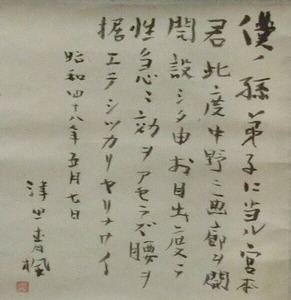 僕ノ孫弟子に当ル宮本
君此ノ度中野ニ画廊ヲ開
設シタ由お目出度シ
性急ニ効ヲアセラズ腰ヲ
据エテシッカリヤリナサイ
昭和四十八年五月七日
津田青楓